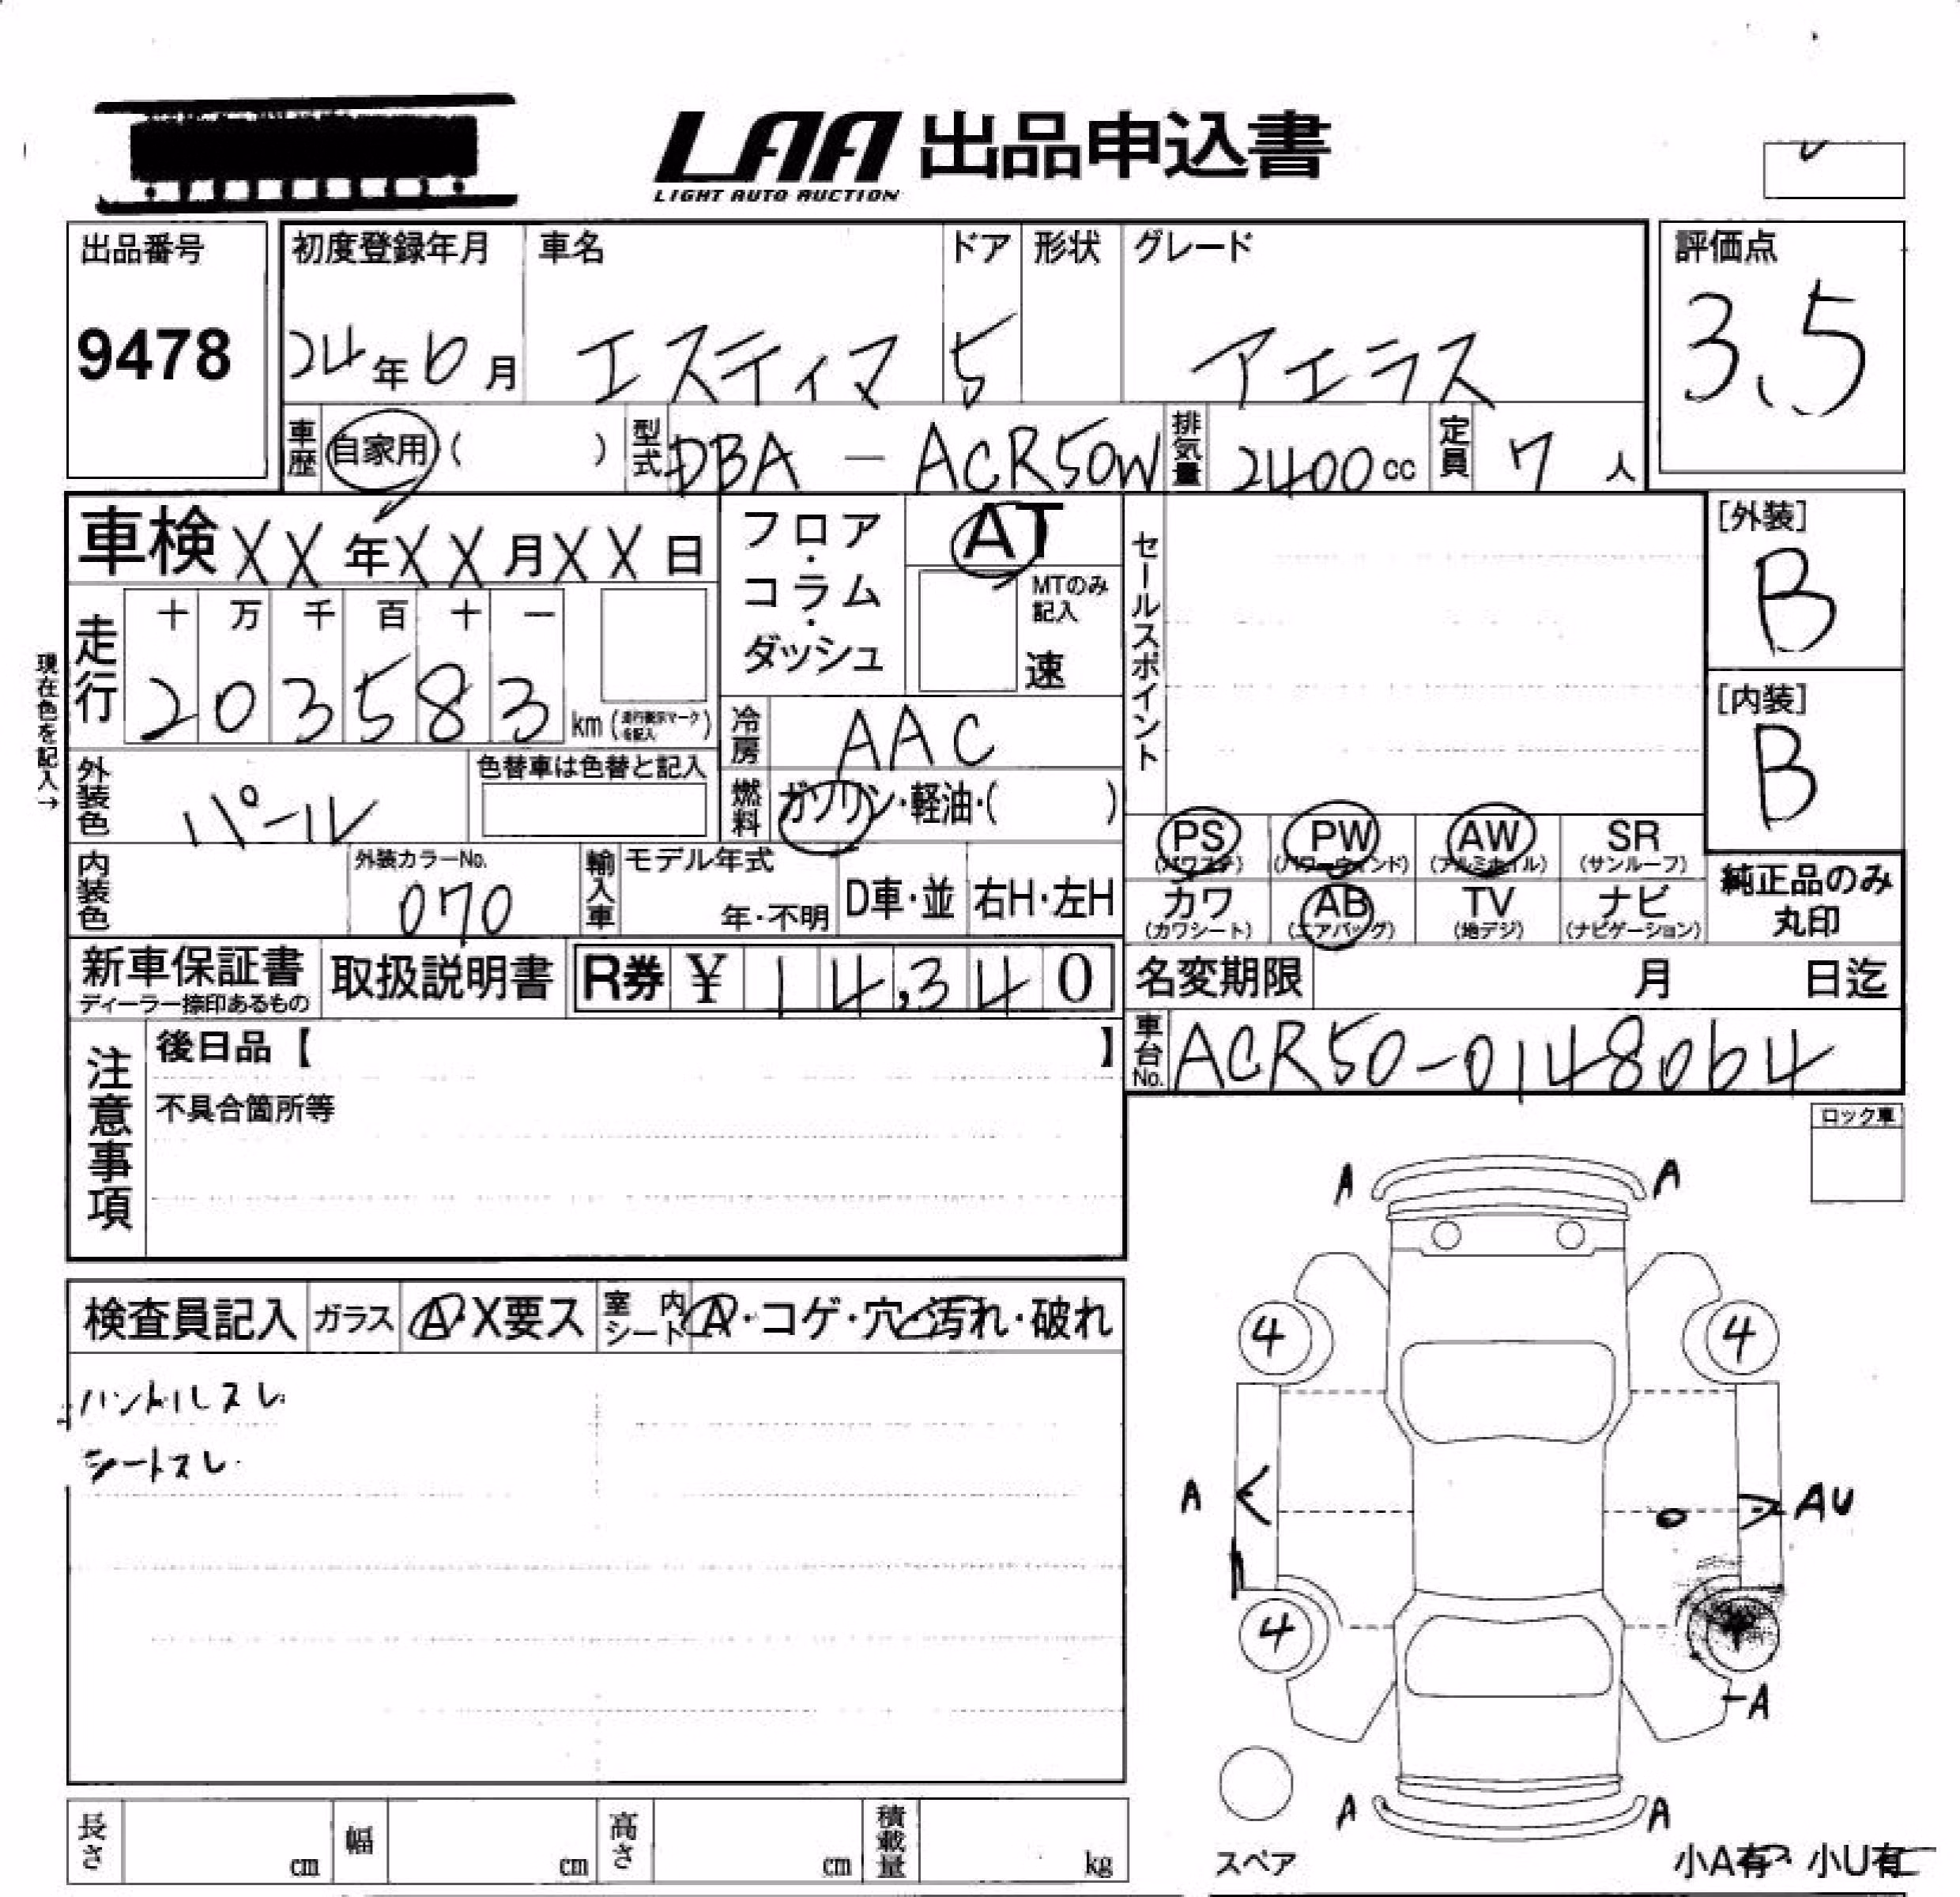 LAA 出品申込書
LIGHT AUTO AUCTION
出品番号
9478
初度登録年月
24年6月
車名
エスティマ
ドア
5
形状
グレード
アエラス
評価点
3.5
車歴 自家用 ( )
型式 DBA - ACR50W
排気量 2400 cc
定員 7 人
車検 XX年XX月XX日
フロア・コラム・ダッシュ
AT
MTのみ記入
速
セールスポイント
[外装]
B
[内装]
B
現在色を記入→
走行
十 万 千 百 十 一
2 0 3 5 8 3 km (走行表示マークを記入)
冷房 AAC
燃料 ガソリン・軽油・( )
外装色 パール
色替車は色替と記入
内装色
外装カラーNo.
070
輸入車
モデル年式
年・不明
D車・並
右H・左H
PS (パワステ)
PW (パワーウィンド)
AW (アルミホイル)
SR (サンルーフ)
カワ (カワシート)
AB (エアバッグ)
TV (地デジ)
ナビ (ナビゲーション)
純正品のみ丸印
新車保証書
ディーラー捺印あるもの
取扱説明書
R券 ¥ 14,340
名変期限 月 日迄
車台No. ACR50-0148064
注意事項
後日品【 】
不具合箇所等
ロック車
検査員記入
ガラス A・X要ス
室内シート A・コゲ・穴・汚れ・破れ
ハンドルスレ
シートスレ
A A
4 4
A AU
4
A
A A
スペア
小A有 小U有
長さ cm
幅 cm
高さ cm
積載量 kg